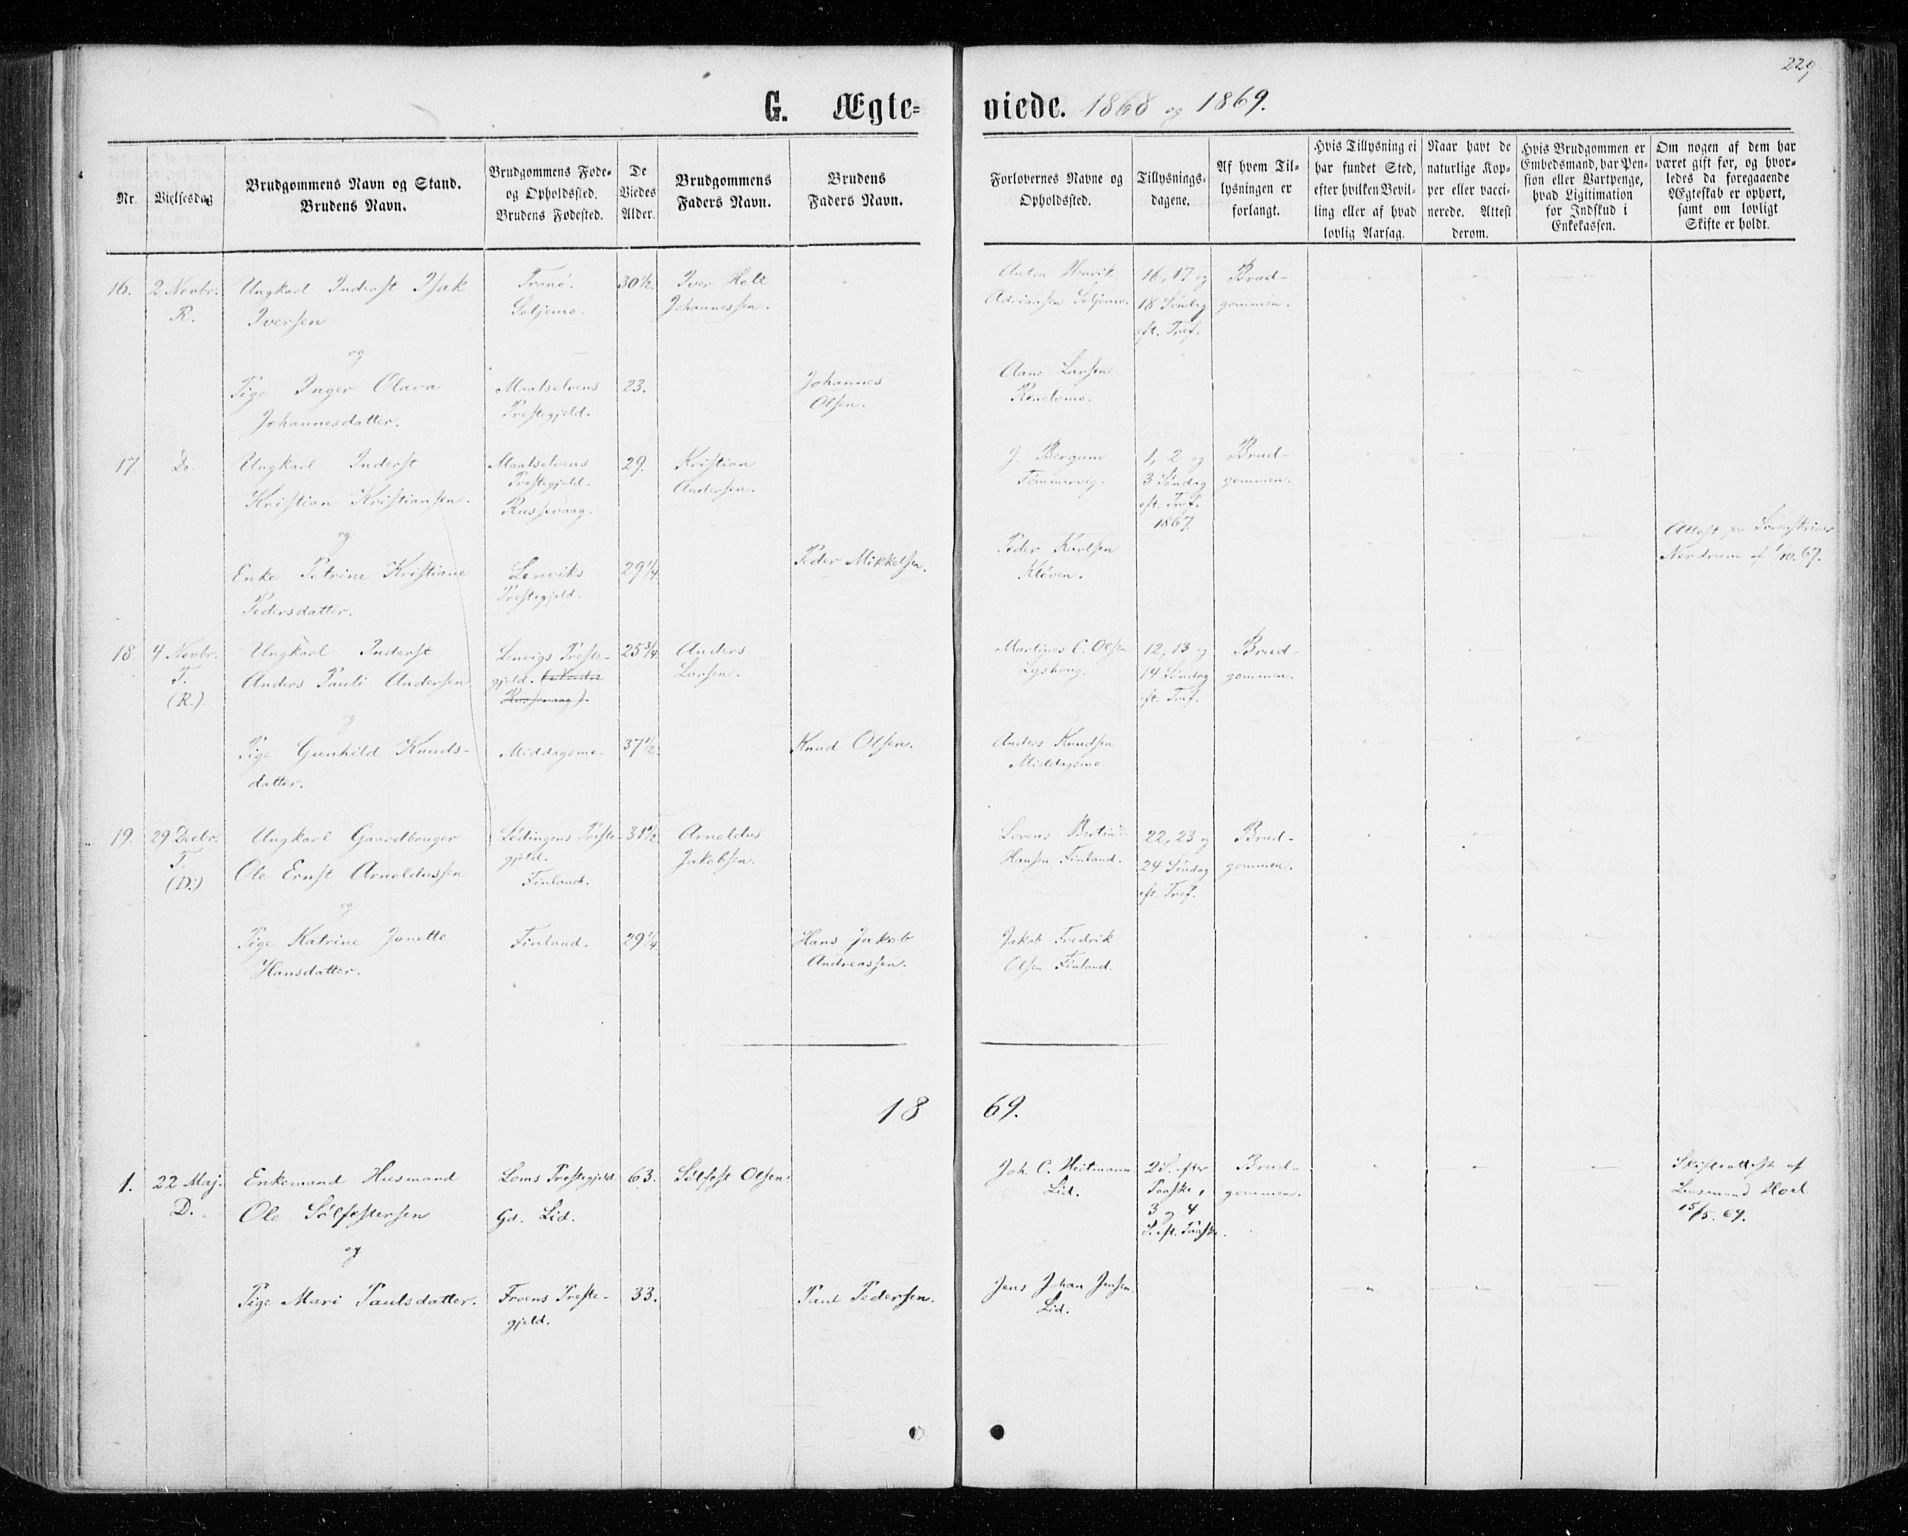 229
G. Ægte=
viede. 1868 og 1869.
Nr.
Vielsesdag
Brudgommens Navn og Stand.
Brudens Navn.
Brudgommens Føde-
og Opholdssted.
Brudens Fødested.
De
Viedes
Alder.
Brudgommens
Faders Navn.
Brudens
Faders Navn.
Forlovernes Navne og
Opholdssted.
Tillysnings-
dagene.
Af hvem Til-
lysningen er
forlangt.
Hvis Tillysning ei
har fundet Sted,
efter hvilken Bevil-
ling eller af hvad
lovlig Aarsag.
Naar havt de
naturlige Kop-
per eller vacci-
nerede. Attest
derom.
Hvis Brudgommen er
Embedsmand, har Pen-
sion eller Vartpenge,
hvad Ligitimation
for Indskud i
Enkekassen.
Om nogen af dem har
været gift før, og hvor-
ledes da foregaaende
Ægteskab er ophørt,
samt om lovligt
Skifte er holdt.
16. 2 Novbr. Ungkarl Inderst Isak Tranø. 30½. Iver Holt Anton Henrik 16, 17 og Brud-
R. Iversen Seljemo. Johannessen. Adriansen Seljemo. 18 Søndag gommen.
eft. Tref.
og
Pige Inger Olava Maalselvens 23. Johannes Aane Larsen
Johannesdatter. Prestegjeld. Olsen.
17. Do. Ungkarl Inderst Maalselvens 29. Kristian J. Bergum 1, 2 og Brud-
Kristian Kristiansen. Prestegjeld. Andersen. Tømmervig. 3 Søndag gommen.
Russevaag. eft. Tref.
1867.
og
Enke Petrine Kristiane Lenviks 29¼. Peder Mikkelsen. Peder Karlsen Attest fr Sorenskriver
Pedersdatter. Prestegjeld. Kløven. Nordrum af 1/10. 67.
18. 4 Novbr. Ungkarl Inderst Lenvigs Preste- 25¾. Anders Martines C. Olsen 12, 13 og Brud-
T. Anders Pauli Andersen gjeld. Larsen. Lysbong. 14 Søndag gommen.
(R.). Russevaag). eft. Tref.
og
Pige Gunhild Knuds- Middagsmo. 37½. Knud Olsen. Anders Knudsen
datter. Middagsmo.
19. 29 Decbr. Ungkarl Gaardbruger Lødingens Preste- 31½ Arnoldus Lorens Bertin 22, 23 og Brud-
T. Ole Ernst Arnoldussen gjeld. Jakobsen. Hansen Finland. 24 Søndag gommen.
(D.) Finland. eft. Tref.
og
Pige Katrine Jonette Finland. 29¼. Hans Jakob Jakob Fredrik
Hansdatter. Andreassen. Olsen Finland.
18 69.
1. 22 Maj. Enkemand Husmand Loms Prestegjeld 63. Sølfest Olsen. Joh. C. Heitmann 2 S. efter Brud- Skifteattest af
D. Ole Sølfestersen Gd. Lid. Lid. Paaske, gommen. Lensmand Hoel
3 og 4 15/5. 69.
S. eft. Paaske.
og
Pige Mari Paulsdatter. Froens Preste- 33. Paul Pedersen. Jens Johan Jensen
gjeld. Lid.